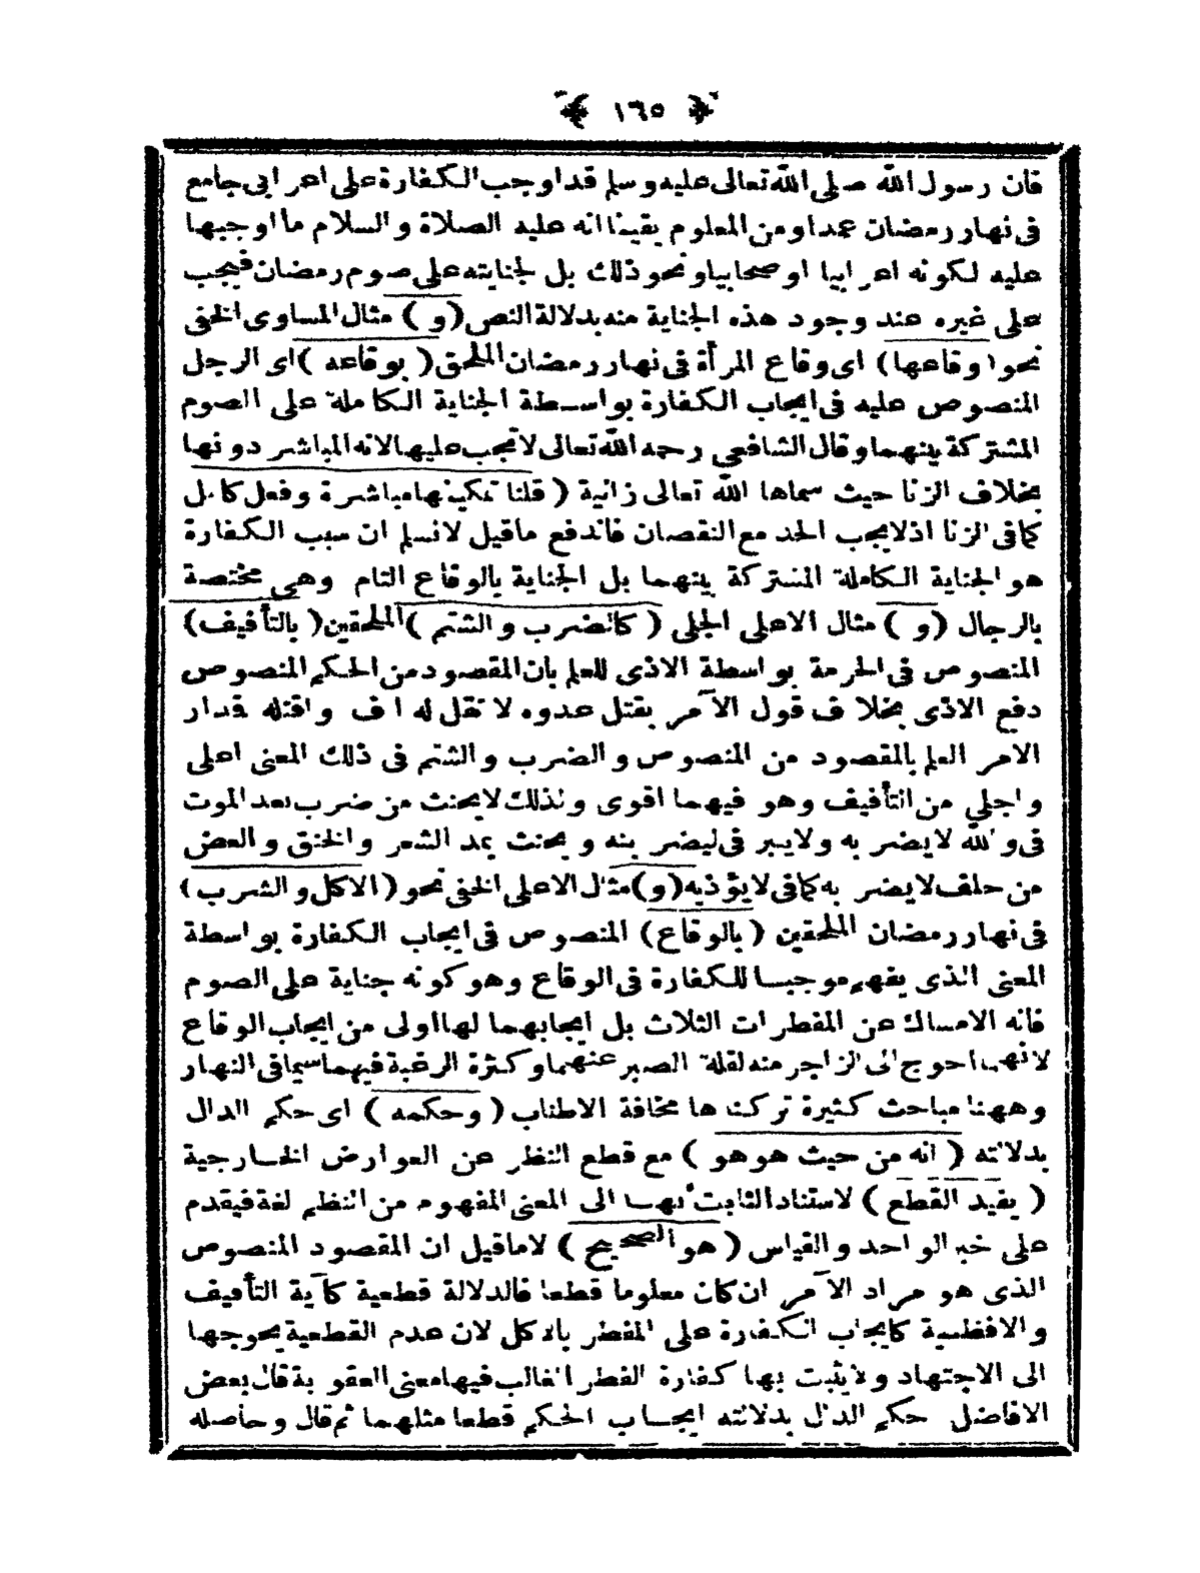 ﴿ ١٦٥ ﴾
فان رسول الله صلى الله تعالى عليه وسلم قد اوجب الكفارة على اعرابى جامع
فى نهار رمضان عمدا ومن المعلوم يقينا انه عليه الصلاة والسلام ما اوجبها
عليه لكونه اعرابيا او صحابيا ونحو ذلك بل لجنايته على صوم رمضان فيجب
على غيره عند وجود هذه الجناية منه بدلالة النص (و) مثال المساوى الخفى
نحو (وقاعها) اى وقاع المرأة فى نهار رمضان الملحق (بوقاعه) اى الرجل
المنصوص عليه فى ايجاب الكفارة بواسطة الجناية الكاملة على الصوم
المشتركة بينهما وقال الشافعى رحمه الله تعالى لا تجب عليها لانه المباشر دونها
بخلاف الزنا حيث سماها الله تعالى زانية (قلنا تمكينها مباشرة وفعل كامل
كما فى الزنا اذ لا يجب الحد مع النقصان فاندفع ما قيل لا نسلم ان سبب الكفارة
هو الجناية الكاملة المشتركة بينهما بل الجناية بالوقاع التام وهى مختصة
بالرجال (و) مثال الاعلى الجلى (كالضرب والشتم) الملحقين (بالتأفيف)
المنصوص فى الحرمة بواسطة الاذى للعلم بان المقصود من الحكم المنصوص
دفع الاذى بخلاف قول الآمر بقتل عدوه لا تقل له اف واقتله فدار
الامر العلم بالمقصود من المنصوص والضرب والشتم فى ذلك المعنى اعلى
واجلى من التأفيف وهو فيهما اقوى ولذلك لا يحنث من ضرب بعد الموت
فى والله لا يضربه ولا يبر فى ليضربنه ويحنث بمد الشعر والخنق والعض
من حلف لا يضربه كما فى لا يؤذيه (و) مثال الاعلى الخفى نحو (الاكل والشرب)
فى نهار رمضان الملحقين (بالوقاع) المنصوص فى ايجاب الكفارة بواسطة
المعنى الذى يفهم موجبا للكفارة فى الوقاع وهو كونه جناية على الصوم
فانه الامساك عن المفطرات الثلاث بل ايجابهما لها اولى من ايجاب الوقاع
لانهما احوج الى الزاجر منه لقلة الصبر عنهما وكثرة الرغبة فيهما سيما فى النهار
وههنا مباحث كثيرة تركناها مخافة الاطناب (وحكمه) اى حكم الدال
بدلالته (انه من حيث هو هو) مع قطع النظر عن العوارض الخارجية
(يفيد القطع) لاستناد الثابت بها الى المعنى المفهوم من النظم لغة فيقدم
على خبر الواحد والقياس (هو الصحيح) لا ما قيل ان المقصود المنصوص
الذى هو مراد الآمر ان كان معلوما قطعا فالدلالة قطعية كآية التأفيف
والافظنية كايجاب الكفارة على المفطر بالاكل لان عدم القطعية يحوجها
الى الاجتهاد ولا يثبت بها كفارة الفطر الغالب فيها معنى العقوبة قال بعض
الافاضل حكم الدال بدلالته ايجاب الحكم قطعا مثلهما ثم قال وحاصله